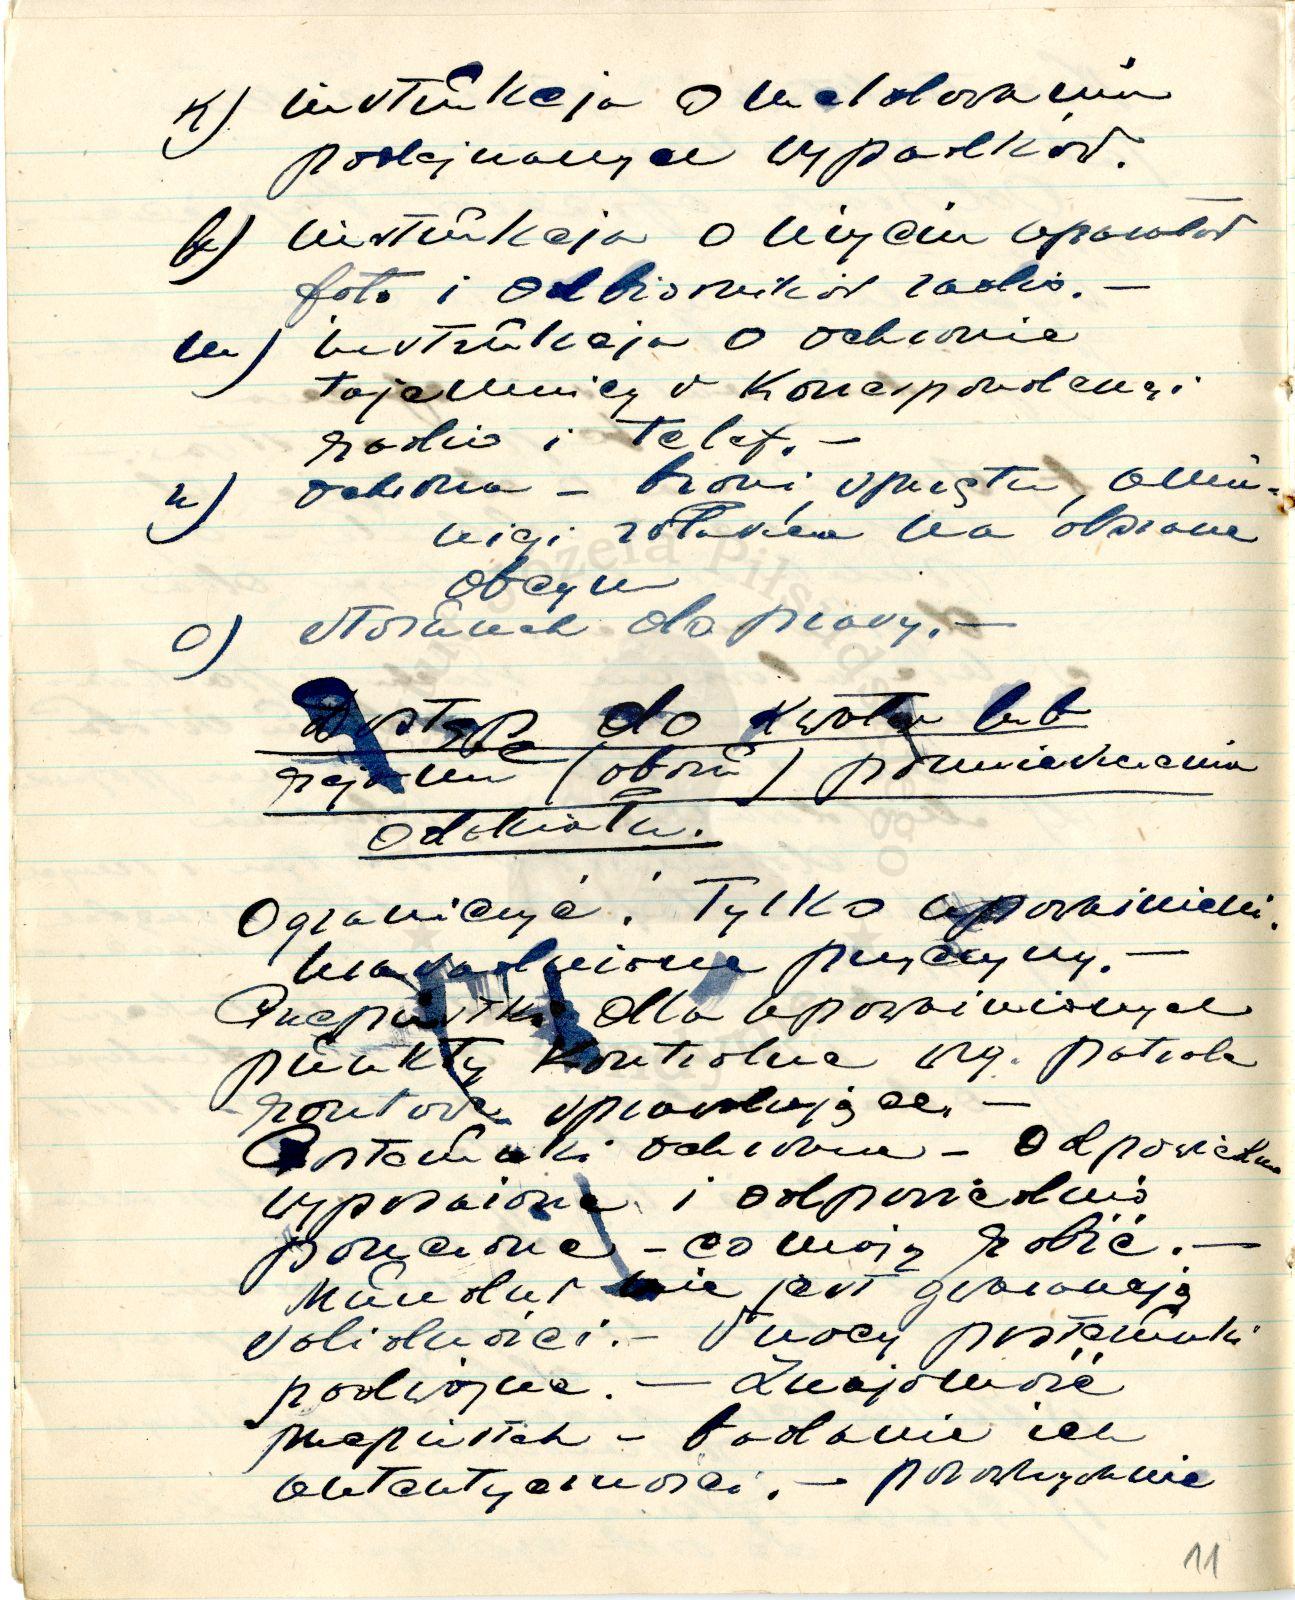 k) instrukcja o meldowaniu
podejrzanych wypadków.
ł) instrukcja o użyciu aparatów
foto i odbiorników radio. —
m) instrukcja o ochronie
tajemnicy w korespondencji
radio i telef. —
n) ochrona — broni, sprzętu, amu-
nicji żołnierza na obszarze
obcym
o) stosunek do prasy. —
Dostęp do kwater lub
rejonu (obozu) pomieszczenia
oddziału.
Ograniczyć. Tylko upoważnieni.
uzasadnione przyczyny. —
Przepustki dla upoważnionych
punkty kontrolne wzg. patrole
kontrole sprawdzające. —
Posterunki ochronne — odpowiednio
wyposażone i odpowiednio
pouczone — co mają robić. —
Mundur nie jest gwarancją
solidności. — W nocy posterunki
podwójne. — Znajomość
przepustek — badanie ich
autentyczności. —
11
Józefa Piłsudskiego